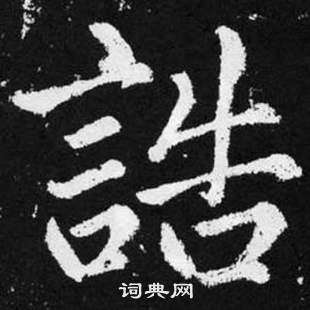 誥
词典网